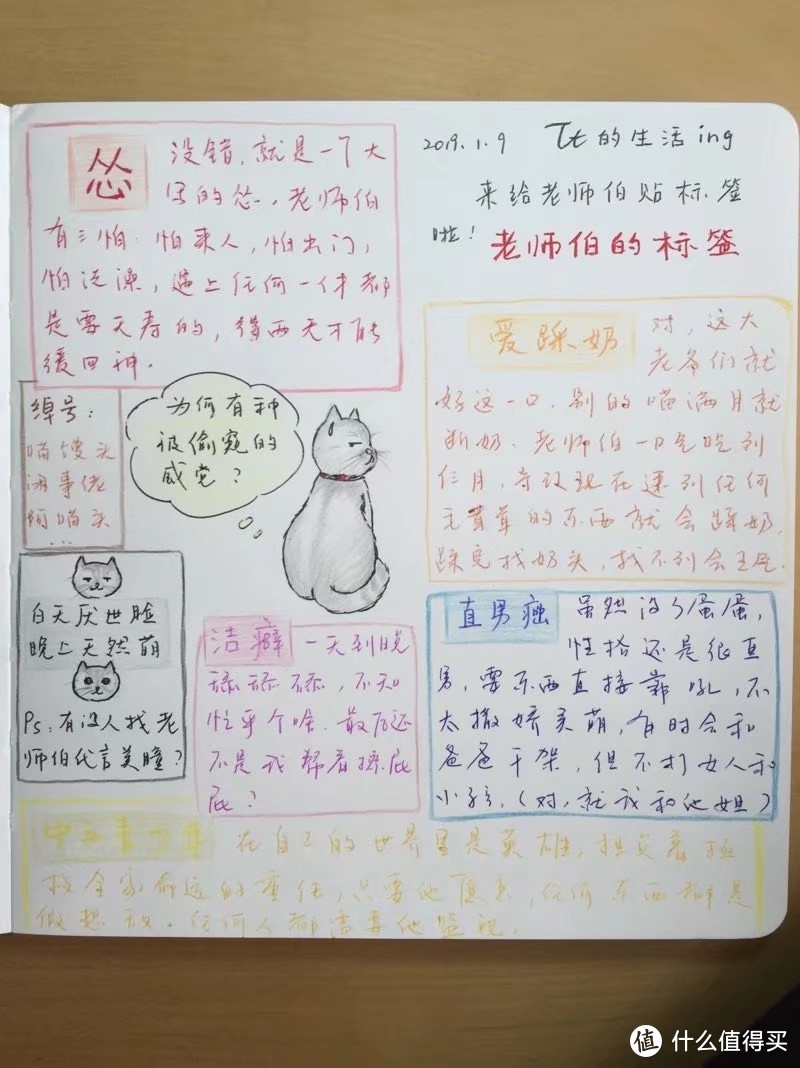 2019.1.9 Tt的生活ing
来给老师伯贴标签
啦!
老师伯的标签
怂
没错,就是一个大
写的怂,老师伯
有三怕:怕来人,怕出门,
怕洗澡,遇上任何一件都
是要天寿的,得两天才能
缓回神.
爱踩奶
对,这大
老爷们就
好这一口.别的喵满月就
断奶.老师伯一口气吃到
仨月,导致现在遇到任何
毛茸茸的东西就会踩奶,
踩完找奶头,找不到会生气.
绰号:
喵馒头
闲事佬
阿喵头
...
为何有种
被偷窥的
感觉?
白天厌世脸
晚上天然萌
Ps:有没人找老
师伯代言美瞳?
洁癖
一天到晚
舔舔舔,不知
忙乎个啥.最后还
不是我帮着擦屁
屁?
直男癌
虽然没了蛋蛋,
性格还是很直
男,要东西直接靠吼,不
太撒娇卖萌,有时会和
爸爸干架,但不打女人和
小孩.(对,就我和他姐)
中二青少年
在自己的世界里是英雄,担负着拯
救全家命运的重任,只要他愿意,任何东西都是
假想敌.任何人都需要他监视.
值 什么值得买